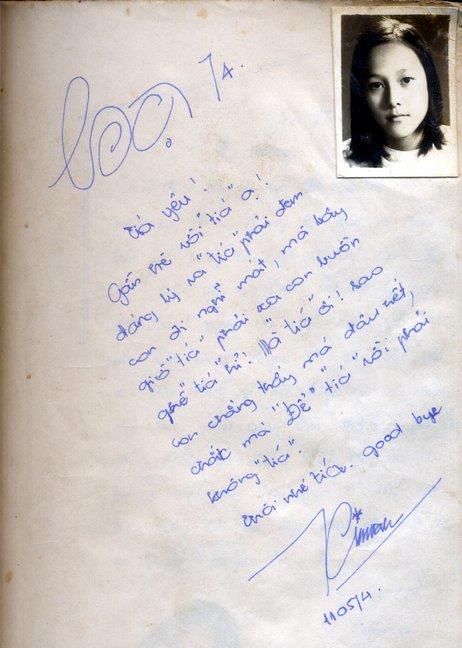 74.
tiá yêu!
Gần hè rồi "tiá" ạ!
đáng lý ra "tiá" phải đem
con đi nghỉ mát, mà bây
giờ "tiá" phải xa con buồn
ghê "tiá" hỉ! Mà "tiá" ơi! sao
con chẳng thấy má đâu hết,
chắc má "Để" "tiá" rồi phải
không "tiá".
thôi nhé tiá. good bye
1105/4.